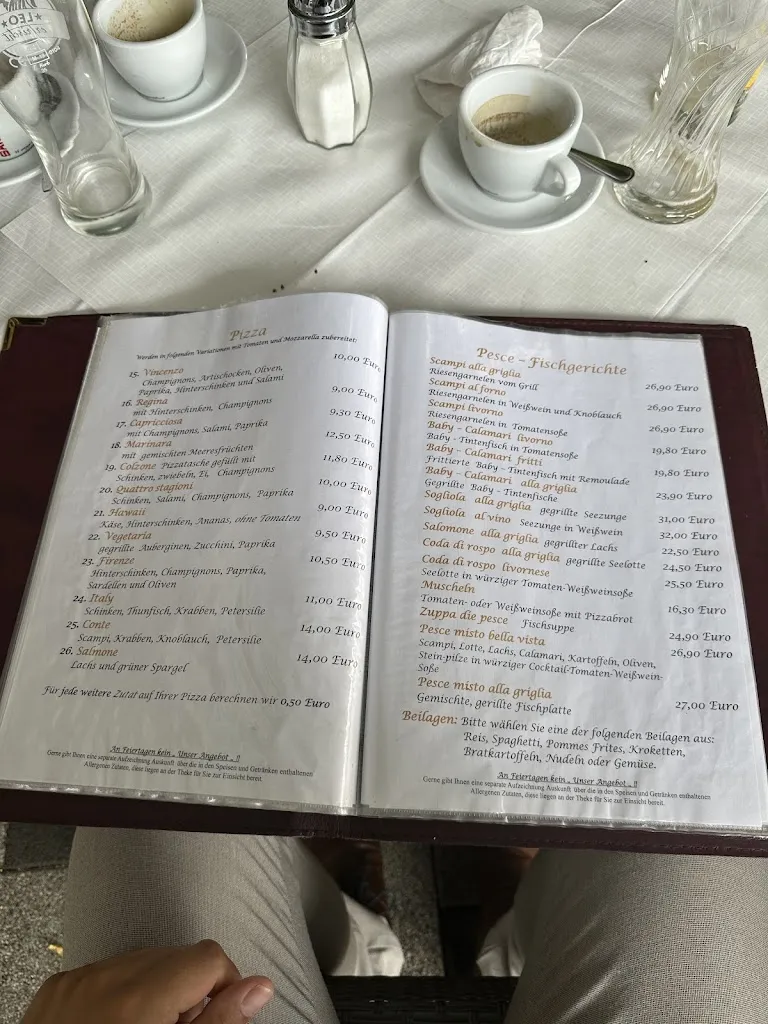 LEO
Pizza
Werden in folgenden Variationen mit Tomaten und Mozzarella zubereitet:
15. Vincenzo 10,00 Euro
Champignons, Artischocken, Oliven,
Paprika, Hinterschinken und Salami
16. Regina 9,00 Euro
mit Hinterschinken, Champignons
17. Capricciosa 9,30 Euro
mit Champignons, Salami, Paprika
18. Marinara 12,50 Euro
mit gemischten Meeresfrüchten
19. Colzone Pizzatasche gefüllt mit 11,80 Euro
Schinken, zwiebeln, Ei, Champignons
20. Quattro stagioni 10,00 Euro
Schinken, Salami, Champignons, Paprika
21. Hawaii 9,00 Euro
Käse, Hinterschinken, Ananas, ohne Tomaten
22. Vegetaria 9,50 Euro
gegrillte Auberginen, Zucchini, Paprika
23. Firenze 10,50 Euro
Hinterschinken, Champignons, Paprika,
Sardellen und Oliven
24. Italy 11,00 Euro
Schinken, Thunfisch, Krabben, Petersilie
25. Conte 14,00 Euro
Scampi, Krabben, Knoblauch, Petersilie
26. Salmone 14,00 Euro
Lachs und grüner Spargel
Für jede weitere Zutat auf Ihrer Pizza berechnen wir 0,50 Euro
An Feiertagen kein „ Unser Angebot „ !!
Gerne gibt Ihnen eine separate Aufzeichnung Auskunft über die in den Speisen und Getränken enthaltenen
Allergenen Zutaten, diese liegen an der Theke für Sie zur Einsicht bereit.
Pesce – Fischgerichte
Scampi alla griglia
Riesengarnelen vom Grill 26,90 Euro
Scampi al forno
Riesengarnelen in Weißwein und Knoblauch 26,90 Euro
Scampi livorno
Riesengarnelen in Tomatensoße 26,90 Euro
Baby - Calamari livorno
Baby - Tintenfisch in Tomatensoße 19,80 Euro
Baby - Calamari fritti
Frittierte Baby - Tintenfisch mit Remoulade 19,80 Euro
Baby - Calamari alla griglia
Gegrillte Baby - Tintenfische 23,90 Euro
Sogliola alla griglia gegrillte Seezunge 31,00 Euro
Sogliola al vino Seezunge in Weißwein 32,00 Euro
Salomone alla griglia gegrillter Lachs 22,50 Euro
Coda di rospo alla griglia gegrillte Seelotte 24,50 Euro
Coda di rospo livornese 25,50 Euro
Seelotte in würziger Tomaten-Weißweinsoße
Muscheln 16,30 Euro
Tomaten- oder Weißweinsoße mit Pizzabrot
Zuppa die pesce Fischsuppe 24,90 Euro
Pesce misto bella vista 26,90 Euro
Scampi, Lotte, Lachs, Calamari, Kartoffeln, Oliven,
Stein-pilze in würziger Cocktail-Tomaten-Weißwein-
Soße
Pesce misto alla griglia
Gemischte, gerillte Fischplatte 27,00 Euro
Beilagen: Bitte wählen Sie eine der folgenden Beilagen aus:
Reis, Spaghetti, Pommes Frites, Kroketten,
Bratkartoffeln, Nudeln oder Gemüse.
An Feiertagen kein „ Unser Angebot „ !!
Gerne gibt Ihnen eine separate Aufzeichnung Auskunft über die in den Speisen und Getränken enthaltenen
Allergenen Zutaten, diese liegen an der Theke für Sie zur Einsicht bereit.